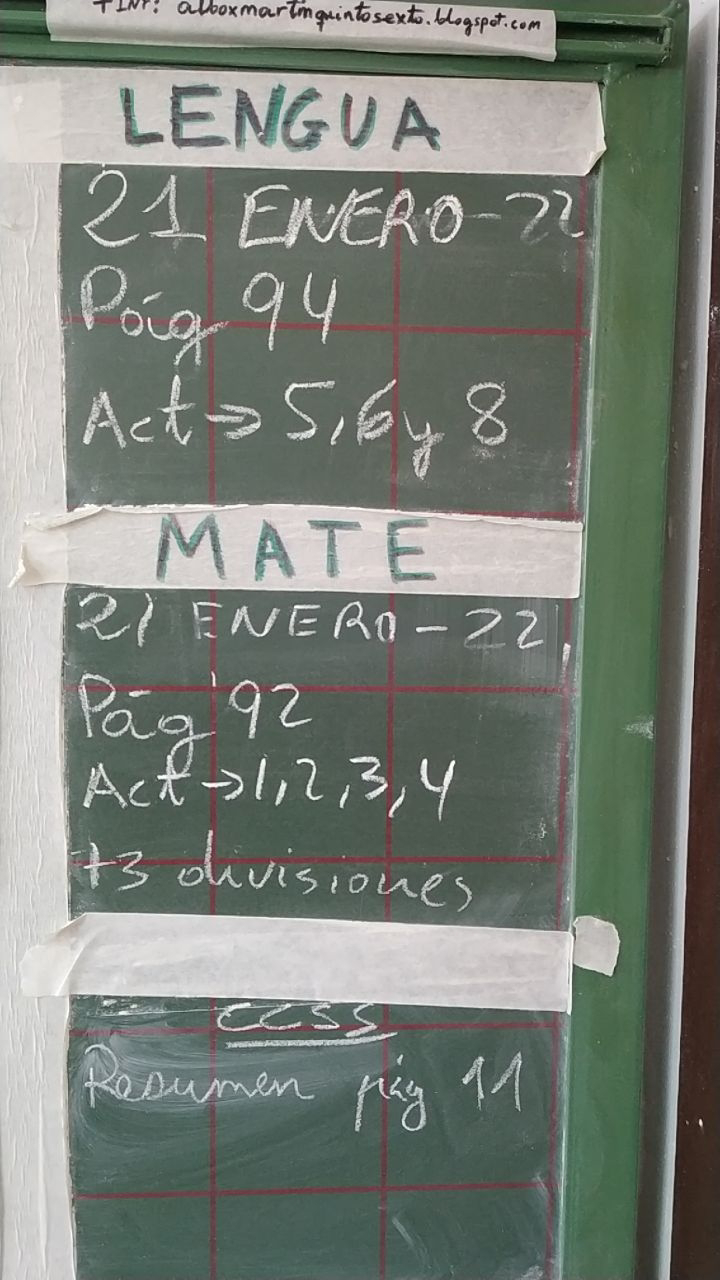 +INF: alboxmartinquintosexto.blogspot.com
LENGUA
21 ENERO-22
Pág 94
Act→ 5,6 y 8
MATE
21 ENERO-22
Pág 92
Act→1,2,3,4
+3 divisiones
CCSS
Resumen pág 11